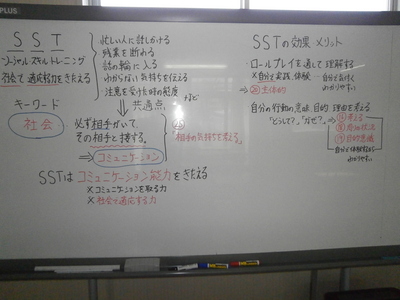 PLUS
SST
ソーシャルスキルトレニング
社会で適応力をきたえる
キーワード
社会
忙しい人に話しかける
残業を断わる
話の輪に入る
わからない気持ちを伝える
注意を受けた時の態度
など
共通点
必ず相手がいて、
その相手と接する。
相手の気持ちを考える。
コミュニケーション
SSTはコミュニケーション能力をきたえる
×コミュニケーションを取る力
×社会で適応する力
SSTの効果・メリット
・ロールプレイを通して理解する
×自分で実践、体験
自分で気付く
わかりやすい
⇒主体的
自分の行動の意味 目的 理由を考える
「どうして?」、「なぜ?」
考える
目的意識
わかりやすい